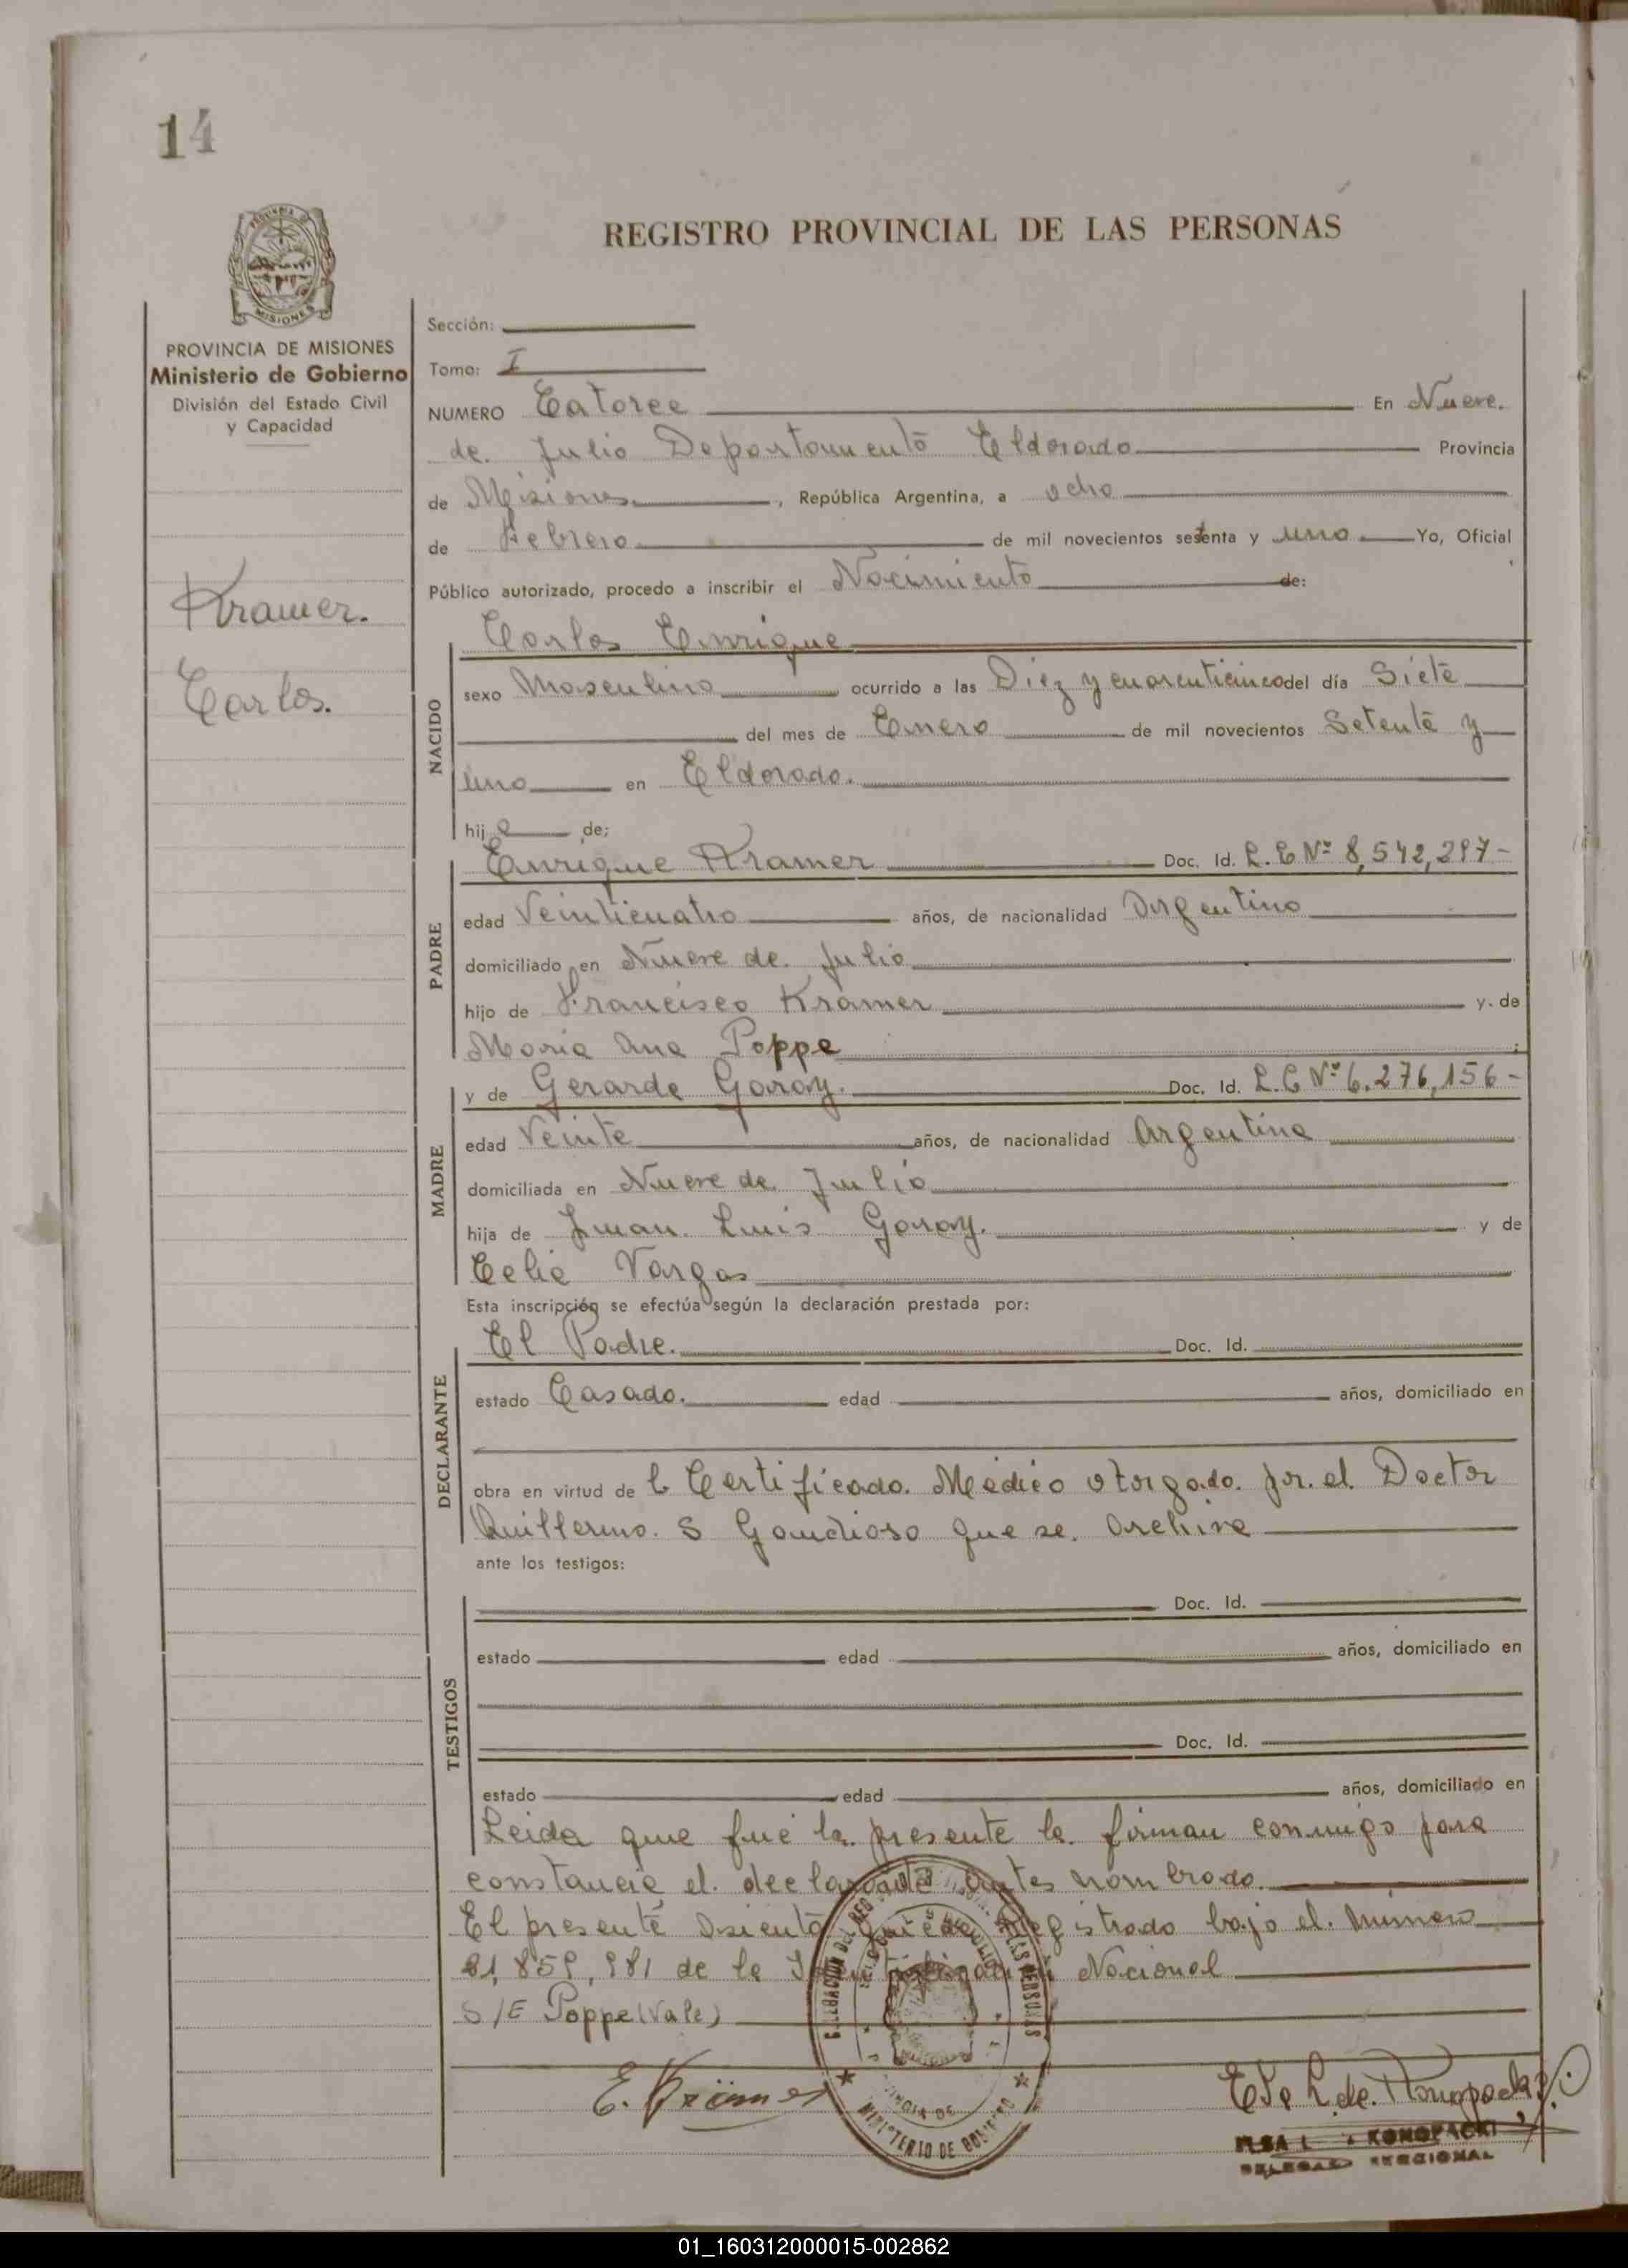 14
PROVINCIA DE MISIONES
Ministerio de Gobierno
División del Estado Civil
y Capacidad
Kramer.
Carlos.
REGISTRO PROVINCIAL DE LAS PERSONAS
Sección:
Tomo: I
NUMERO Catorce En Nueve.
de. Julio Departamento Eldorado Provincia
de Misiones, República Argentina, a ocho
de Febrero de mil novecientos setenta y uno Yo, Oficial
Público autorizado, procedo a inscribir el Nacimiento de:
NACIDO
Carlos Enrique
sexo Masculino ocurrido a las Diez y cuarenticinco del día Siete
del mes de Enero de mil novecientos Setenta y
uno en Eldorado.
hijo de;
PADRE
Enrique Kramer Doc. Id. L. E Nº 8,542,297-
edad Veinticuatro años, de nacionalidad Argentino
domiciliado en Nueve de. Julio
hijo de Francisco Kramer y. de
Maria Ana Poppe
MADRE
y de Gerarda Garay. Doc. Id. L.C Nº 6.276,156-
edad Veinte años, de nacionalidad Argentina
domiciliada en Nueve de Julio
hija de Juan. Luis Garay. y de
Celia Vargas
Esta inscripción se efectúa según la declaración prestada por:
DECLARANTE
El Padre. Doc. Id.
estado Casado. edad años, domiciliado en
obra en virtud de Certificado. Médico otorgado. por. el Doctor
Guillermo. S Gaudioso que se. archiva
ante los testigos:
TESTIGOS
Doc. Id.
estado edad años, domiciliado en
Doc. Id.
estado edad años, domiciliado en
Leida que fué la. presente la. firman conmigo para
constancia el. declarante antes nombrado.
El presente asiento queda registrado bajo el. número
de la Nacional
S/E Poppe (Vale)
E. Krämer
MINISTERIO DE GOBIERNO
KONOPACKI
01_160312000015-002862